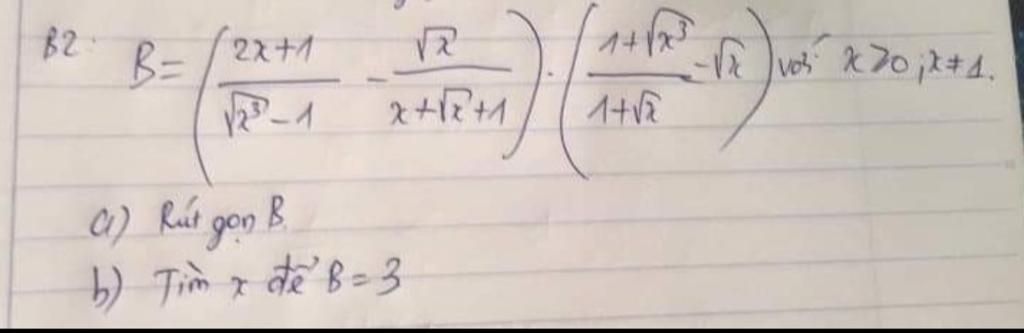 B2: B = ( (2x+1)/(√x³ − 1) − √x/(x+√x+1) ) . ( (1+√x³)/(1+√x) − √x ) với x ≥ 0 ; x ≠ 1.
a) Rút gọn B.
b) Tìm x để B = 3